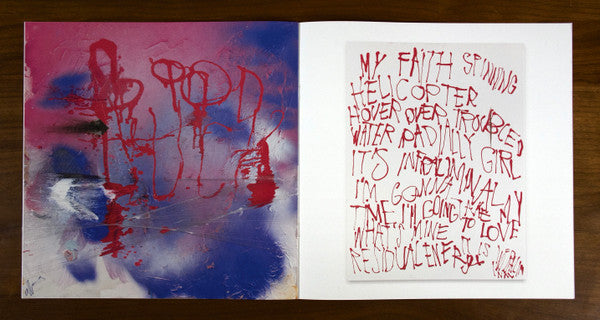 MY FAITH SPINNING
HELICOPTER
HOVER OVER TROUBLED
WATER RADIALLY GIRL
IT'S INTRALIMINAL
I'M GONNA TAKE MY
TIME I'M GOING TO LOVE
WHAT'S MINE IT IS
RESIDUAL ENERGY